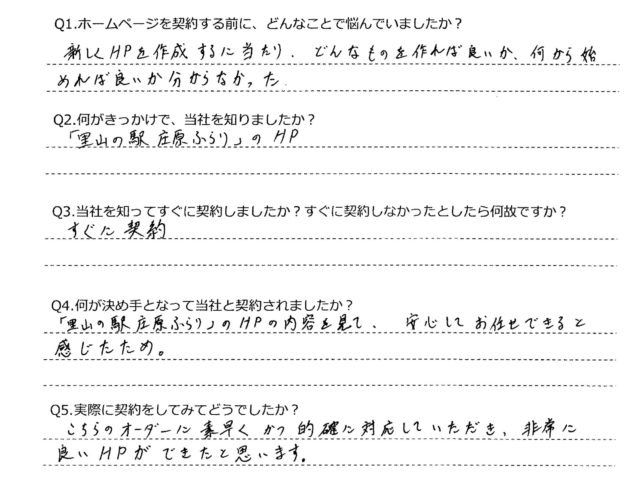 Q1.ホームページを契約する前に、どんなことで悩んでいましたか？
新しくHPを作成するに当たり、どんなものを作れば良いか、何から始
めれば良いか分からなかった.
Q2.何がきっかけで、当社を知りましたか？
「里山の駅 庄原ふらり」のHP
Q3.当社を知ってすぐに契約しましたか？すぐに契約しなかったとしたら何故ですか？
すぐに契約
Q4.何が決め手となって当社と契約されましたか？
「里山の駅 庄原ふらり」のHPの内容を見て、安心してお任せできると
感じたため。
Q5.実際に契約をしてみてどうでしたか？
こちらのオーダーに素早くかつ的確に対応していただき、非常に
良いHPができたと思います。